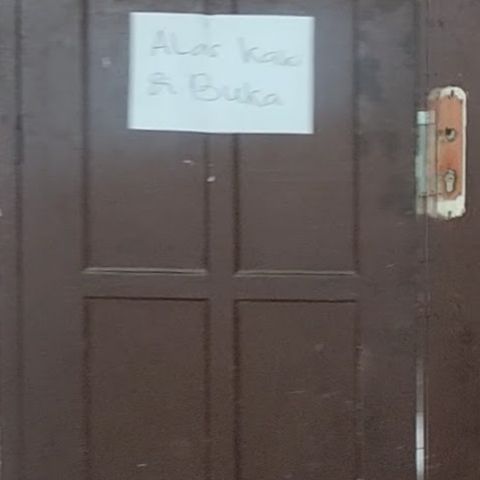 Alas Kaki
di Buka